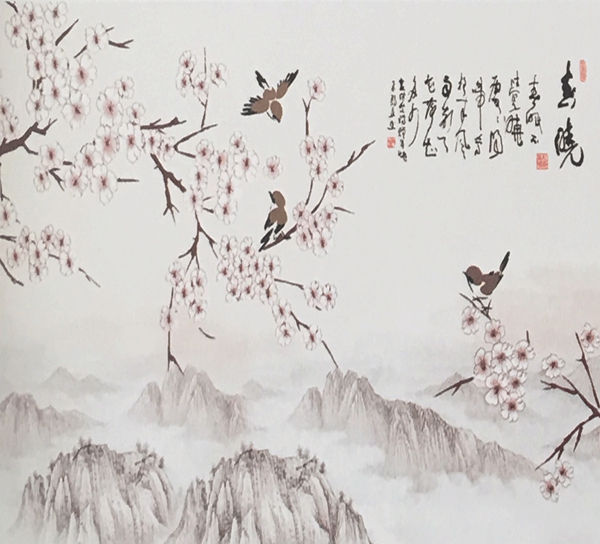 春曉
春眠不
覺曉
處々聞
啼鳥
夜来風
雨聲
花落知
多少